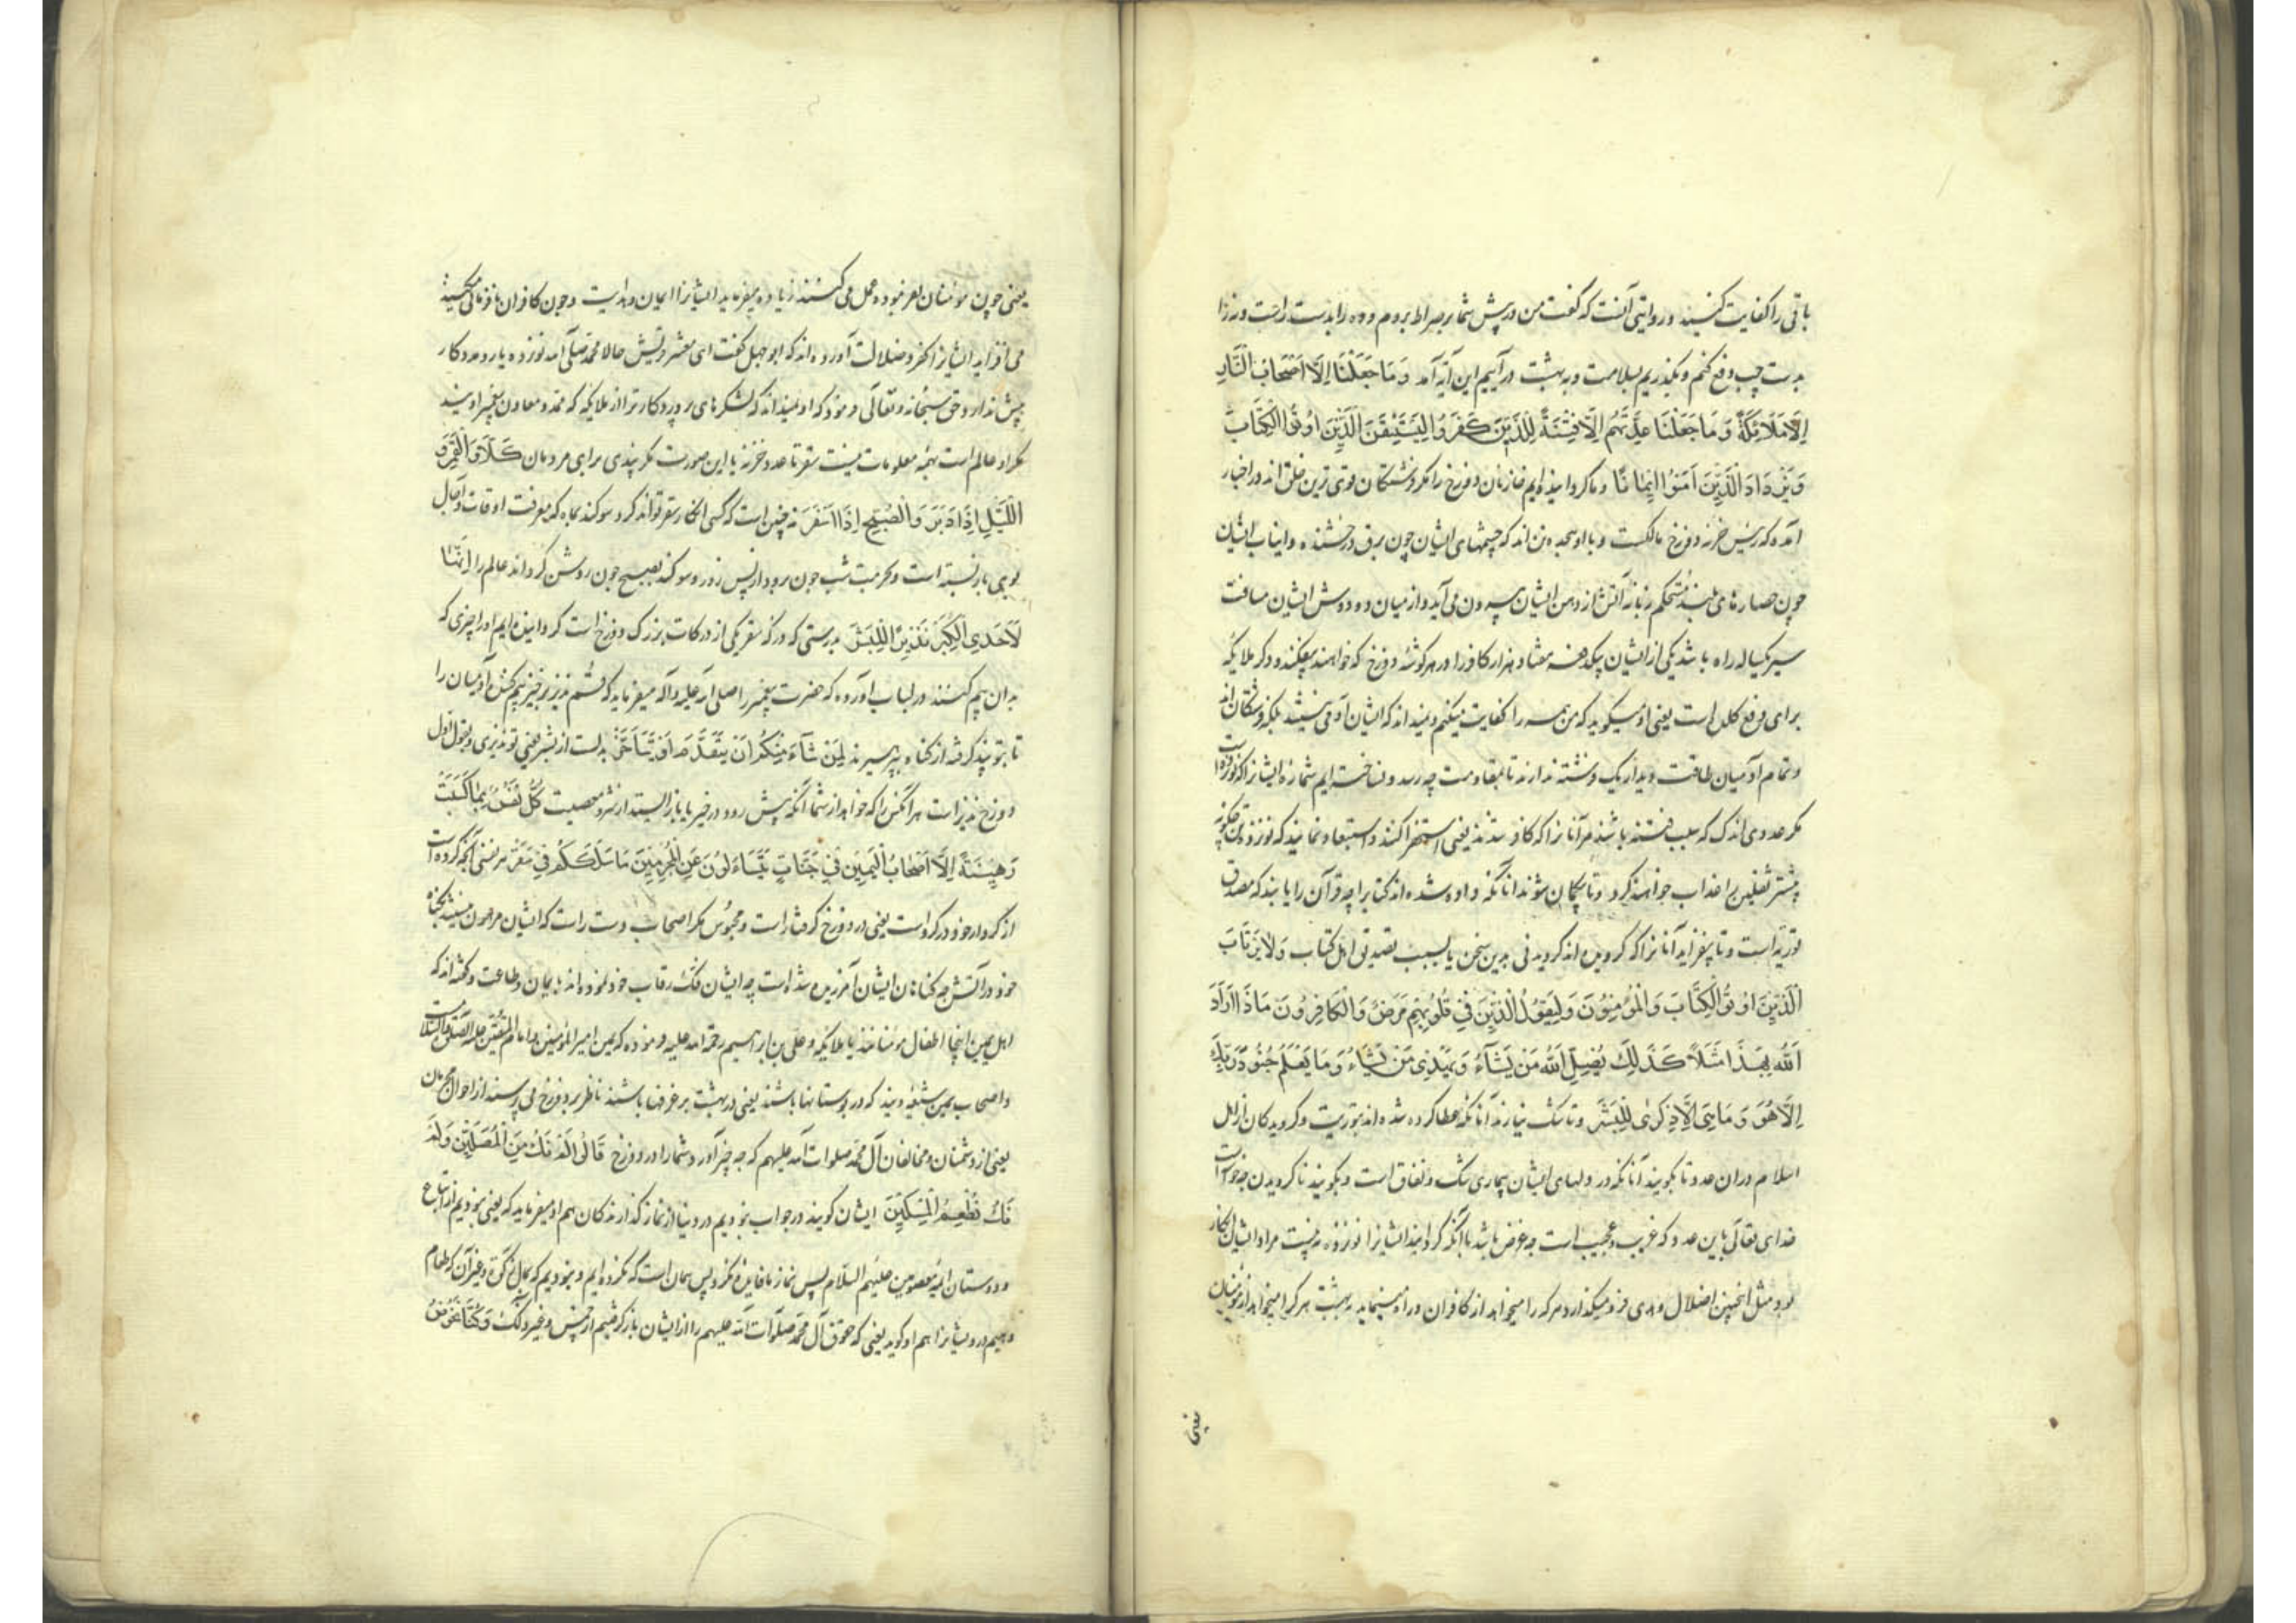 باقی را کفایت کنید و روایتی آنست که گفت من در پیش شما بر صراط بروم و ده را بدست راست و نه را
بدست چپ دفع کنم و بگذریم بسلامت و به بهشت در آییم این آیه آمد وَمَا جَعَلْنَا اِلَّا اَصْحَابَ النَّارِ
اِلَّا مَلَائِکَةً وَمَا جَعَلْنَا عِدَّتَهُمْ اِلَّا فِتْنَةً لِلَّذِینَ کَفَرُوا لِیَسْتَیْقِنَ الَّذِینَ اوُتُوا الْکِتَابَ
وَیَزْدَادَ الَّذِینَ اٰمَنُوا اِیمَانًا و ما نگردانیده‌ایم خازنان دوزخ را مگر فرشتگان قوی ترین خلق اند در اخبار
آمده که رئیس خزنه دوزخ مالکست و با او هجده تن اند که چشمهای ایشان چون برق درخشنده و انیاب ایشان
چون حصارهای بلند مستحکم زبانه آتش از دهن ایشان بیرون می آید و از میان دو دوش ایشان مسافت
سیر یکساله راه باشد یکی از ایشان بیکدفعه هفتاد هزار کافر را در هر گوشه دوزخ که خواهند بیفکند و ذکر ملایکه
برای دفع کلل است یعنی او میگوید که من همه را کفایت میکنم و نمیداند که ایشان آدمی نیستند بلکه فرشتگان اند
و تمام آدمیان طاقت دیدار یک فرشته ندارند تا بمقاومت چه رسد و نساخته ایم شماره ایشانرا که نوزده است
مگر عددی اندک که سبب فتنه باشد مر آنانرا که کافر شدند یعنی استهزا کنند و استبعاد نمایند که نوزده تن چگونه
بیشتر ثقلین را عذاب خواهند کرد و تا بیگمان شوند آنانکه داده شده اند کتاب را چه قرآن را یابند که مصدق
توریة است و تا بیفزاید آنانرا که گرویده اند گرویدنی بدین سخن یا بسبب تصدیق اهل کتاب وَلَا یَرْتَابَ
الَّذِینَ اوُتُوا الْکِتَابَ وَالْمُؤْمِنُونَ وَلِیَقُولَ الَّذِینَ فِی قُلُوبِهِمْ مَرَضٌ وَالْکَافِرُونَ مَاذَا اَرَادَ
اللّٰهُ بِهٰذَا مَثَلًا کَذٰلِکَ یُضِلُّ اللّٰهُ مَنْ یَشَآءُ وَیَهْدِی مَنْ یَشَاءُ وَمَا یَعْلَمُ جُنُودَ رَبِّکَ
اِلَّا هُوَ وَمَا هِیَ اِلَّا ذِکْرٰی لِلْبَشَرِ و تا شک نیارند آنانکه عطا کرده شده اند بتوریت و گرویدکان از اهل
اسلام در آن عدد و تا بگویند آنانکه در دلهای ایشان بیماری شک و نفاق است و بگویند ناگرویدن چه خواست
خدای تعالی باین عدد که غریب و عجیب است چه غرض باشد باآنکه گردانید ایشانرا نوزده و نیست مراد ایشان انکار
بود مثل اینچنین اضلال و هدی فرو میگذارد هر که را میخواهد از کافران و راه مینماید به بهشت هر کرا میخواهد از مؤمنان
یعنی
یعنی چون مؤمنان امر نموده عمل می کنند زیاده میفرماید ایشانرا ایمان و هدایت و چون کافران نافرمانی میکنند
می افزاید ایشانرا کفر و ضلالت آورده اند که ابوجهل گفت ای معشر قریش حالا محمد صلی الله نوزده یار و مددکار
بیش ندارد حق سبحانه و تعالی فرمود که او نمیداند که لشکرهای پروردکار ترا از ملایکه که ممد و معاون پیغمبراویند
مگر او عالم است بهمه معلومات نیست سقر تا عدد خزنه با این صورت مگر پندی برای مردمان کَلَّا وَالْقَمَرِ وَ
اللَّیْلِ اِذَا اَدْبَرَ وَالصُّبْحِ اِذَا اَسْفَرَ نه چنین است که کسی انکار سقر تواند کرد سوگند بماه که معرفت اوقات و آجال
بوی باز بسته است و بحرمت شب چون برود از پس روز و سوگند بصبح چون روشن گرداند عالم را اِنَّهَا
لَاِحْدَی الْکُبَرِ نَذِیرًا لِلْبَشَرِ بدرستی که درکه سقر یکی از درکات بزرک دوزخ است گردانیده ایم او را چیزی که
بدان بیم کنند و در لباب آورده که حضرت پیغمبر را صلی الله علیه و آله میفرماید که قم نذیر برخیز بیم کننده آدمیان را
تا بتو پند گرفته از گناه بپرهیزند لِمَنْ شَآءَ مِنْکُمْ اَنْ یَتَقَدَّمَ اَوْ یَتَاَخَّرَ بدلست از بشر یعنی تو نذیری و بقول اول
دوزخ نذیر است هر آنکس را که خواهد از شما آنکه پیش رود در خیر یا باز ایستد از شر و معصیت کُلُّ نَفْسٍ بِمَا کَسَبَتْ
رَهِینَةٌ اِلَّا اَصْحَابَ الْیَمِینِ فِی جَنَّاتٍ یَتَسَاءَلُونَ عَنِ الْمُجْرِمِینَ مَا سَلَکَکُمْ فِی سَقَرَ هر نفسی بآنچه کرده است
از کردار خود در گرو است یعنی در دوزخ گرفتار است و محبوس مگر اصحاب دست راست که ایشان مرهون نیستند بگناه
خود در آتش چه گناهان ایشان آمرزیده شده است چه ایشان فک رقاب خود نموده اند بایمان و طاعت و گفته اند که
اهل یمین اینجا اطفال مؤمنانند یا ملایکه و علی بن ابراهیم رحمة الله علیه فرموده که یمین امیر المؤمنین و امام المتقین علیه الصلوة والسلام است
و اصحاب یمین شیعه ویند که در بوستانها باشند یعنی در بهشت بر غرفها باشند ناظر بر دوزخ می پرسند از احوال مجرمان
یعنی از دشمنان و مخالفان آل محمد صلوات الله علیهم که چه چیز آورد شما را در دوزخ قَالُوا لَمْ نَکُ مِنَ الْمُصَلِّینَ وَلَمْ
نَکُ نُطْعِمُ الْمِسْکِینَ ایشان گویند در جواب نبودیم در دنیا از نماز گذارندکان هم او میفرماید که یعنی نبودیم از اتباع
و دوستان ائمه معصومین علیهم السلام پس نماز ما فایده نکرد پس همان است که نکرده ایم و نبودیم که بمال زکوة و غیر آن که طعام
دهیم درویشانرا هم او گوید یعنی که حقوق آل محمد صلوات الله علیهم را از ایشان باز گرفتیم از خمس و غیر ذلک وَکُنَّا نَخُوضُ